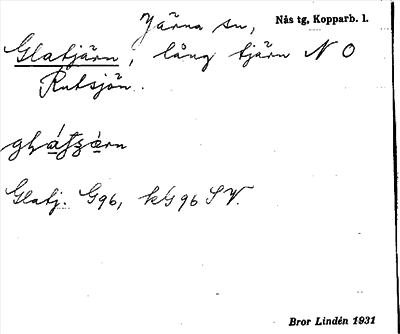 Järna sn, Nås tg, Kopparb. l.
Glatjärn, lång tjärn N O
Rutsjön.
Glatj. G96, kG 96 S V.
Bror Lindén 1931